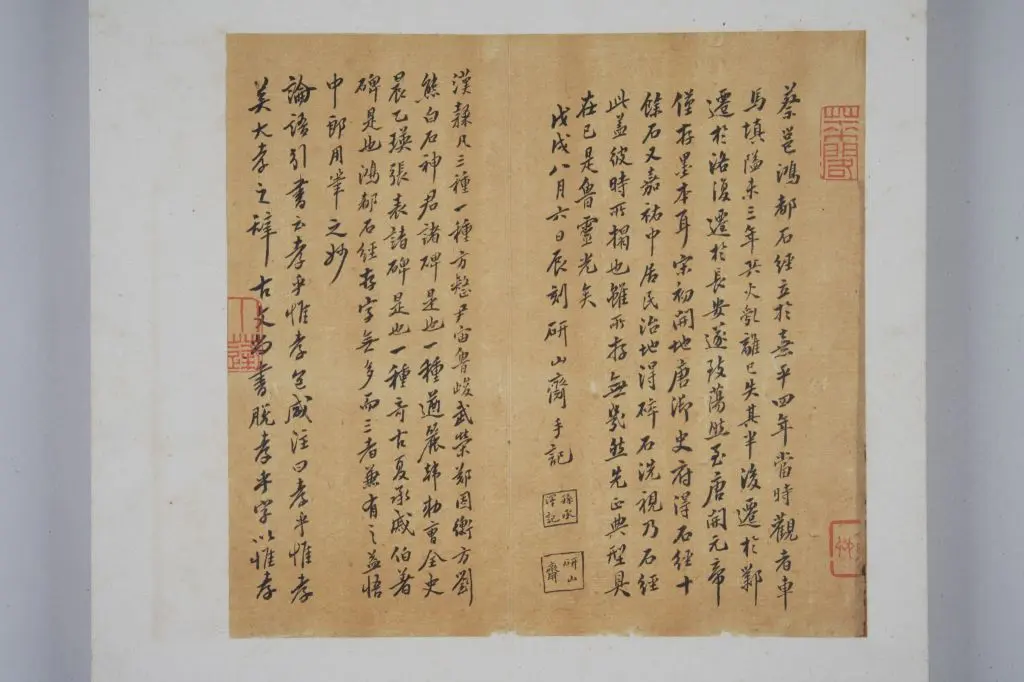 蔡邕鴻都石經立於熹平四年當時觀者車
馬填隘未三年兵火亂離已失其半後遷於鄴
遷於洛復遷於長安遂致蕩然至唐開元帝
僅存墨本耳宋初開地唐御史府得石經十
餘石又嘉祐中居民治地得碎石洗視乃石經
此蓋彼時所搨也雖所存無幾然先正典型具
在已是魯靈光矣
戊戌八月六日辰刻研山齋手記
孫承澤記
研山齋
漢隸凡三種一種方整尹宙魯峻武榮鄭固衡方劉
熊白石神君諸碑是也一種遒麗韩勑曹全史
晨乙瑛張表諸碑是也一種奇古夏承戚伯著
碑是也鴻都石經存字無多而三者兼有之益悟
中郎用筆之妙
論語引書云孝乎惟孝包咸注曰孝乎惟孝
美大孝之辞古文尚書脱孝乎字以惟孝